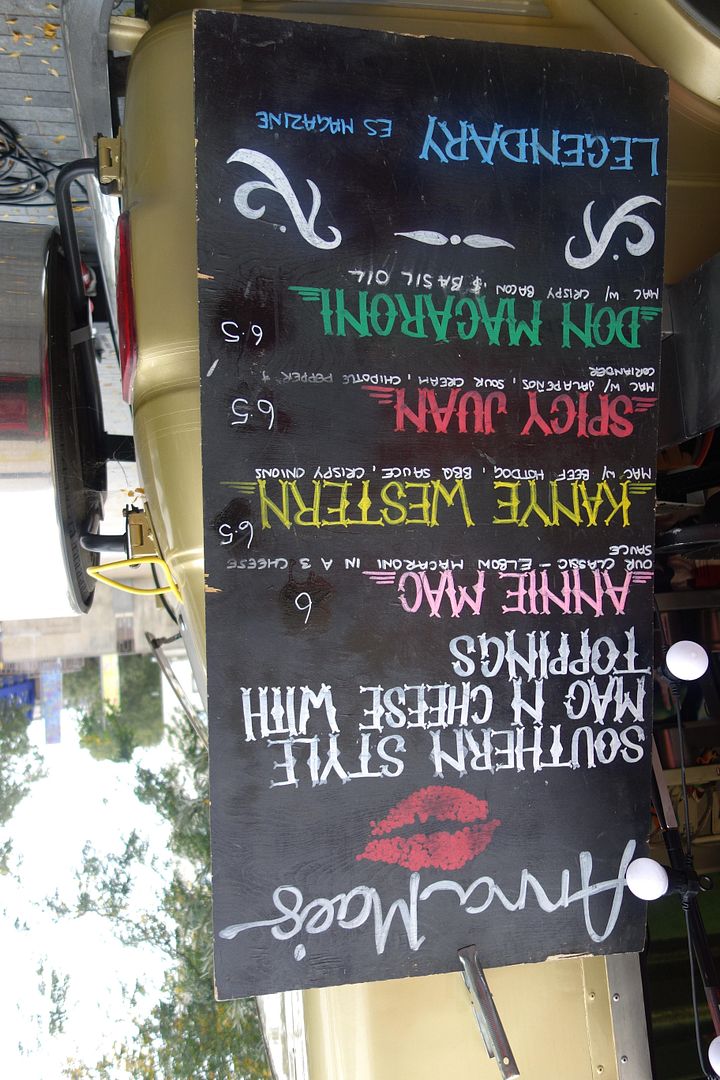 Anna Mae's
SOUTHERN STYLE
MAC N CHEESE WITH
TOPPINGS
ANNIE MAC 6
OUR CLASSIC - ELBOW MACARONI IN A 3 CHEESE
SAUCE
KANYE WESTERN 6.5
MAC W/ BEEF HOTDOG, BBQ SAUCE, CRISPY ONIONS
SPICY JUAN 6.5
MAC W/ JALAPEÑOS, SOUR CREAM, CHIPOTLE PEPPER &
CORIANDER
DON MACARONI 6.5
MAC W/ CRISPY BACON & BASIL OIL
LEGENDARY ES MAGAZINE